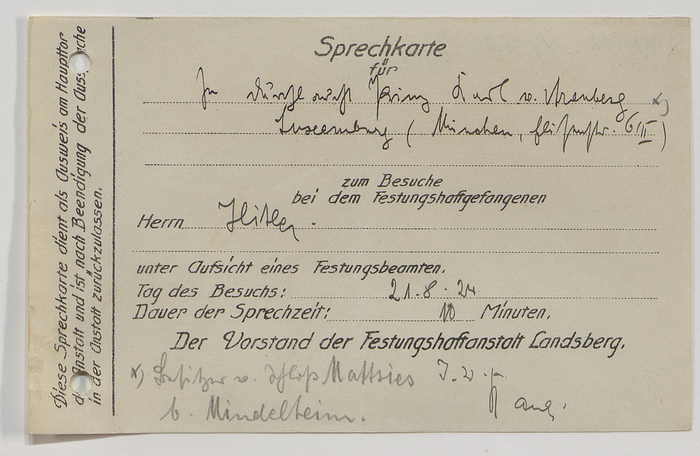 Diese Sprechkarte dient als Ausweis am Haupttor
der Anstalt und ist nach Beendigung der Aussprache
in der Anstalt zurückzulassen.
Sprechkarte
für
Prinz Karl v. Arenberg x)
Luxemburg (München, 6/III)
zum Besuche
bei dem Festungshaftgefangenen
Herrn Hitler.
unter Aufsicht eines Festungsbeamten.
Tag des Besuchs: 21.8.24
Dauer der Sprechzeit: 10 Minuten.
Der Vorstand der Festungshaftanstalt Landsberg.
x) Besitzer v. Schloß Mattsies J.V.
b. Mindelheim.